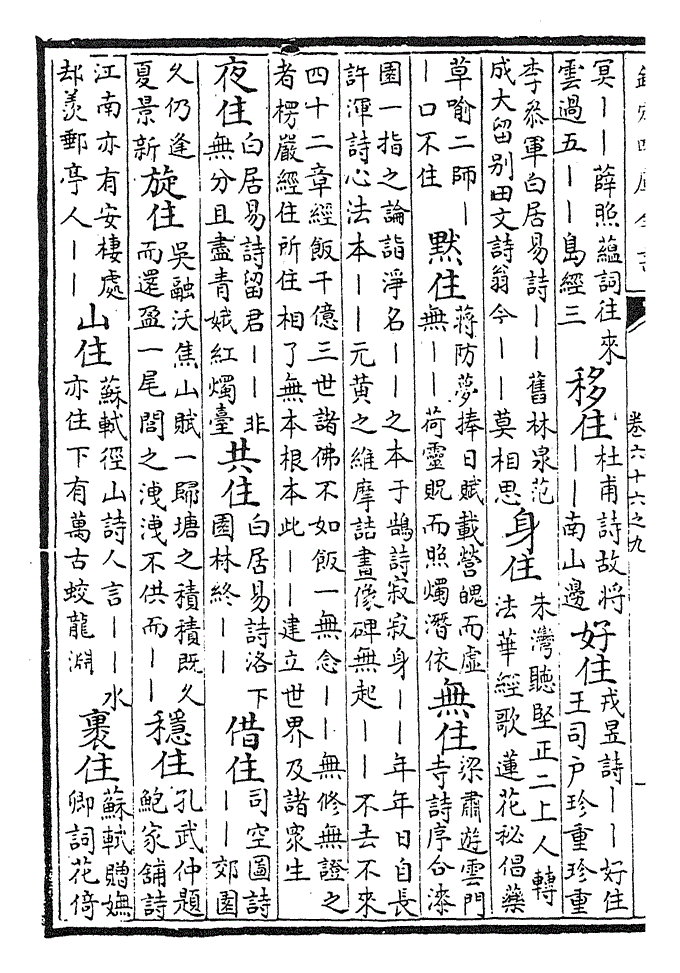 欽定四庫全書
卷六十六之九
冥——薛照蘊詞往來
雲過五——島經三
移住
杜甫詩故將
——南山邊
好住
戎昱詩——好住
王司户珍重珍重
李叅軍白居易詩——舊林泉范
成大留别田文詩翁今——莫相思
身住
朱灣聽堅正二上人轉
法華經歌蓮花秘倡藥
草喻二師—
—口不住
黙住
蔣防夢捧日賦載營魄而虚
無——荷靈貺而照燭潛依
無住
梁肅遊雲門
寺詩序合漆
園一指之論詣淨名——之本于鵠詩寂寂身——年年日自長
許渾詩心法本——元黄之維摩詰畫像碑無起——不去不來
四十二章經飯千億三世諸佛不如飯一無念——無修無證之
者楞嚴經住所住相了無本根本此——建立世界及諸衆生
夜住
白居易詩留君——非
無分且盡青娥紅燭臺
共住
白居易詩洛下
園林終——
借住
司空圖詩
——郊園
久仍逢
夏景新
旋住
吳融沃焦山賦一歸塘之積積既久
而還盈一尾閭之洩洩不供而——
穩住
孔武仲題
鮑家舖詩
江南亦有安棲處
却羨郵亭人——
山住
蘇軾徑山詩人言——水
亦住下有萬古蛟龍淵
裹住
蘇軾贈嫵
卿詞花倚